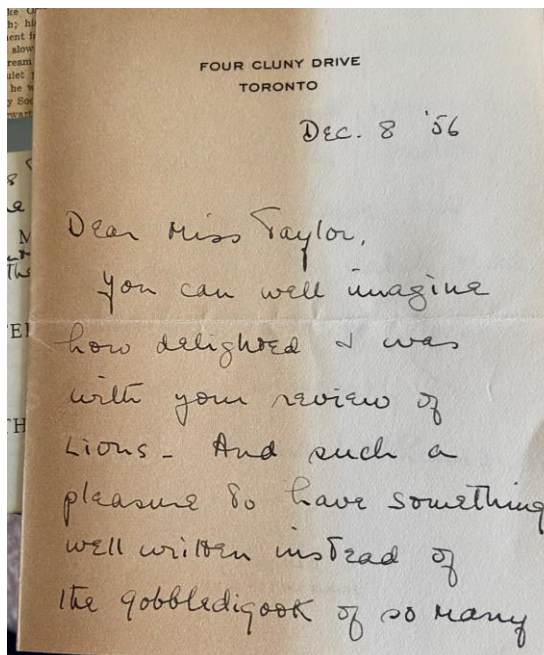 FOUR CLUNY DRIVE
TORONTO
Dec. 8 '56
Dear Miss Taylor,
You can well imagine
how delighted I was
with your review of
Lions - And such a
pleasure to have something
well written instead of
the gobbledigook of so many